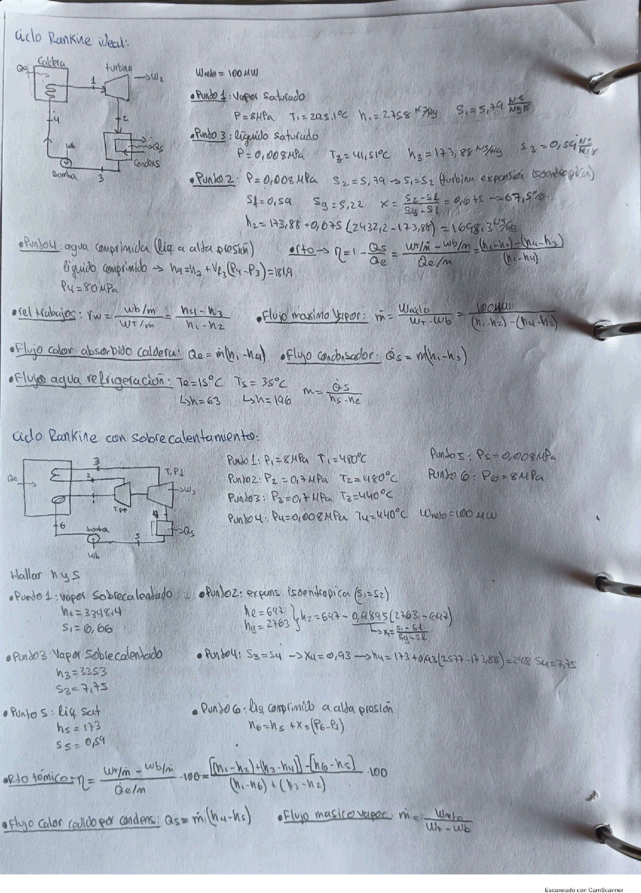 Ciclo Rankine ideal:
Caldera
turbina
Qe
1
W2
2
4
Qs
Condens
Wb
Bomba
3
Wneto = 100 MW
• Punto 1: vapor saturado
P = 8MPa T1 = 295,1°C h1 = 2758 KJ/Kg S1 = 5,79
• Punto 3: líquido saturado
P = 0,008MPa T3 = 41,51°C h3 = 173,88 KJ/Kg S3 = 0,59
• Punto 2: P = 0,008MPa S2 = 5,79 → S1 = S2 (turbina expansión isoentrópica)
Sf = 0,59 Sg = 5,22 x = S2-Sf/Sg-Sf = 0,675 → 67,5%
h2 = 173,88 + 0,675 (2432,2 - 173,88) = 1698,3
• Punto 4: agua comprimida (liq a alta presión)
líquido comprimido → h4 = h3 + Vf3(P4-P3) = 181,9
P4 = 80MPa
• rto → η = 1 - Qs/Qe = (Wt/ṁ - Wb/ṁ)/(Qe/m) = (h1-h2)-(h4-h3)/(h1-h4)
• rel trabajos: rw = (Wb/m)/(WT/m) = (h4-h3)/(h1-h2)
• Flujo masimo vapor: ṁ = Wneto/(Wt-Wb) = 100MW/((h1-h2)-(h4-h3))
• Flujo calor absorbido caldera: Qe = ṁ(h1-h4) • Flujo condensador: Qs = ṁ(h1-h3)
• Flujo agua refrigeración: Te = 15°C Ts = 35°C m = Qs/(hs-he)
↳h = 63 ↳h = 146
Ciclo Rankine con sobrecalentamiento:
Qe
3
2
T.P↓
W2
T.P↑
4
Qs
6
bomba
5
Wb
Punto 1: P1 = 8MPa T1 = 480°C
Punto 2: P2 = 0,7MPa T2 = 480°C
Punto 3: P3 = 0,7MPa T3 = 440°C
Punto 4: P4 = 0,008MPa T4 = 440°C Wneto = 100 MW
Punto 5: P5 = 0,008MPa
Punto 6: P6 = 8MPa
Hallar h y s
• Punto 1: vapor sobrecalentado
h1 = 3348,4
S1 = 6,66
• Punto 2: expans isoentropica (S1 = S2)
hf = 697
hg = 2763
h2 = 697 - 0,9895 (2763 - 697)
↳ x = (S1-Sf)/(Sg-Sf)
• Punto 3 Vapor Sobrecalentado
h3 = 3353
S3 = 7,75
• Punto 4: S3 = S4 → x4 = 0,93 → h4 = 173 + 0,93 (2577 - 173,88) = 248 S4 = 7,75
• Punto 5: Liq Sat
h5 = 173
S5 = 0,59
• Punto 6: Liq comprimido a alta presión
h6 = h5 + x5(P6-P5)
• Rto térmico: η = (Wt/ṁ - Wb/ṁ)/(Qe/m) · 100 = [(h1-h2)+(h3-h4)]-[h6-h5]/((h1-h6)+(h3-h2)) · 100
• Flujo calor cedido por condens: Qs = ṁ(h4-h5)
• Flujo masico vapor: ṁ = Wneto/(Wt-Wb)
Escaneado con CamScanner